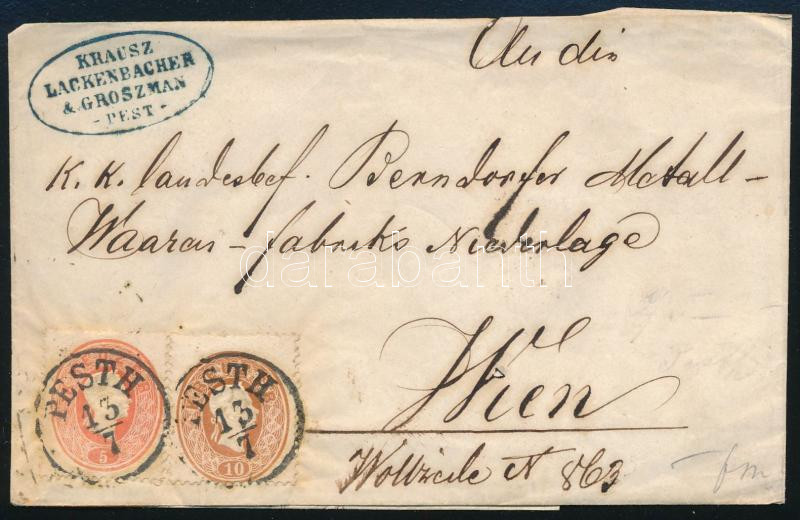 KRAUSZ
LACKENBACHER
& GROSZMAN
- PEST -
An die
K. K. landesbef. Berndorfer Metall-
Waaren-fabriks Niederlage
darabanth
Wien
Wollzeile N 863
PESTH
13/7
5
PESTH
13/7
10
fm